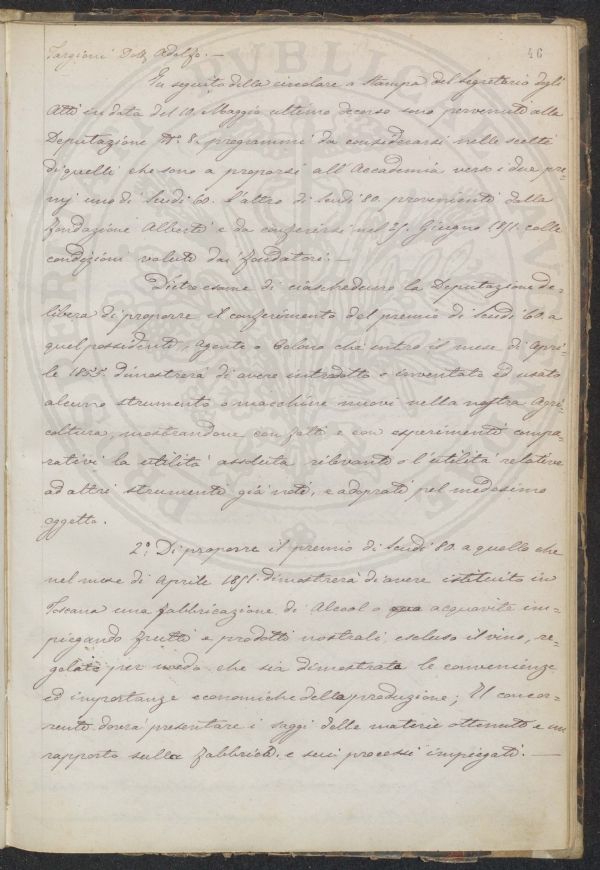 46
Targioni Dott. Adolfo. —
In seguito della circolare a stampa del Segretario degli
Atti in data del 10. Maggio ultimo decorso sono pervenuti alla
Deputazione N.° 8. programmi da considerarsi nelle scelte
di quelli che sono a proporsi all'Accademia verso i due pre=
mj uno di Scudi 60. l'altro di Scudi 80. provenienti dalla
fondazione Alberti e da conferirsi nel 25. Giugno 1855. colle
condizioni volute dai fondatori. —
Dietro esame di ciascheduno la Deputazione de=
libera di proporre il conferimento del premio di Scudi 60. a
quel possidente, Agente o Colono che entro il mese di Apri=
le 1855. dimostrerà di avere introdotto o inventato ed usato
alcuno strumento o macchine nuovi nella nostra Agri=
coltura, mostrandone con fatti e con esperimenti compa=
rativi la utilità assoluta rilevante o l'utilità relative
ad altri strumenti già noti, e adoprati pel medesimo
oggetto.
2.° Di proporre il premio di Scudi 80. a quello che
nel mese di Aprile 1855. dimostrerà di avere istituito in
Toscana una fabbricazione di Alcool o acquavite im=
piegando frutti e prodotti nostrali, escluso il vino, re=
golata per modo che sia dimostrata le convenienze
ed importanze economiche della produzione; Il concor=
rente dovrà presentare i saggi delle materie ottenute e un
rapporto sulla fabbrica, e sui processi impiegati. —
PVBLICAE